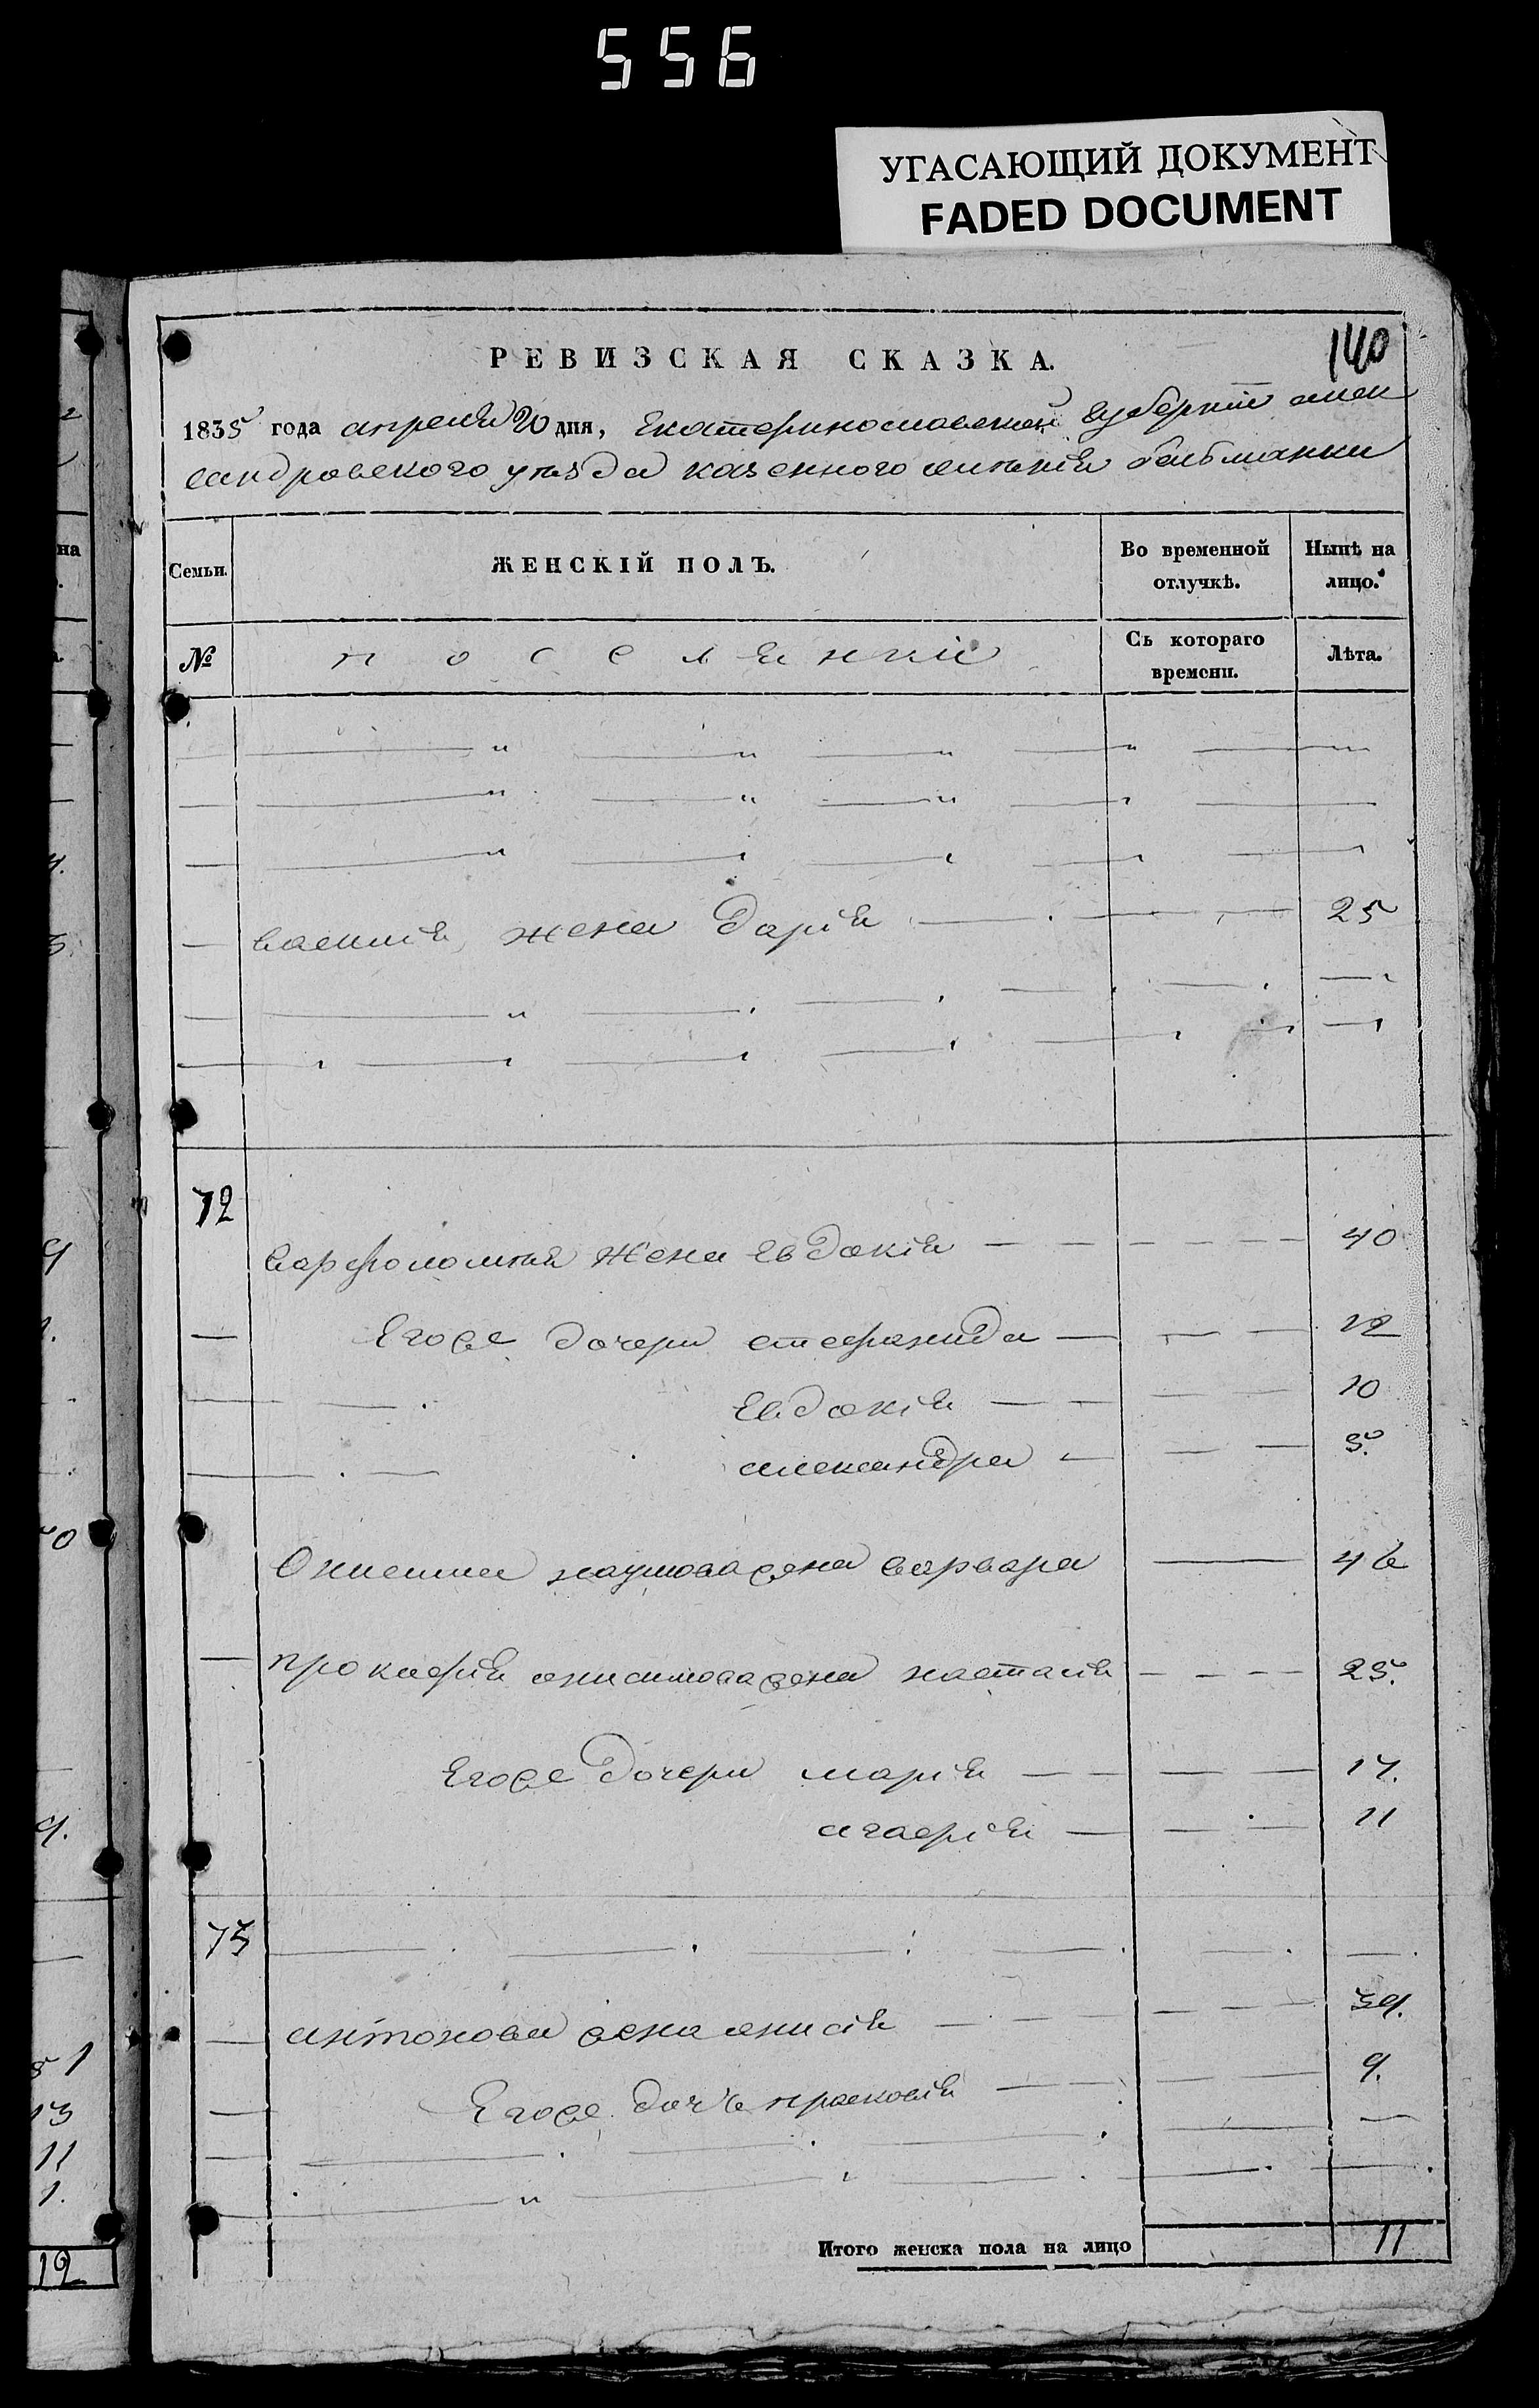 556
УГАСАЮЩИЙ ДОКУМЕНТ
FADED DOCUMENT
140
РЕВИЗСКАЯ СКАЗКА.
1835 года апреля 20 дня, Екатеринославской губернiи алек
сандровского уѣзда казенного селенiя бельманки
Семьи. ЖЕНСКIЙ ПОЛЪ. Во временной отлучкѣ. Нынѣ на лицо.
№ поселянии Съ котораго времени. Лѣта.
василiя жена дарiя 25
72
варфоломѣя жена Евдокiя 40
Егоже дочери степанида 12
Евдокiя 10
александра 5.
Онисима наумова жена варвара 46
прокофiя онисимова жена настасiя 25.
Егоже дочери марiя 17.
агафiя 11
73
антонова жена анисiя 39.
Егоже дочь прасковiя 9.
Итого женска пола на лицо 11
на
4.
3
51
13
11
1.
12